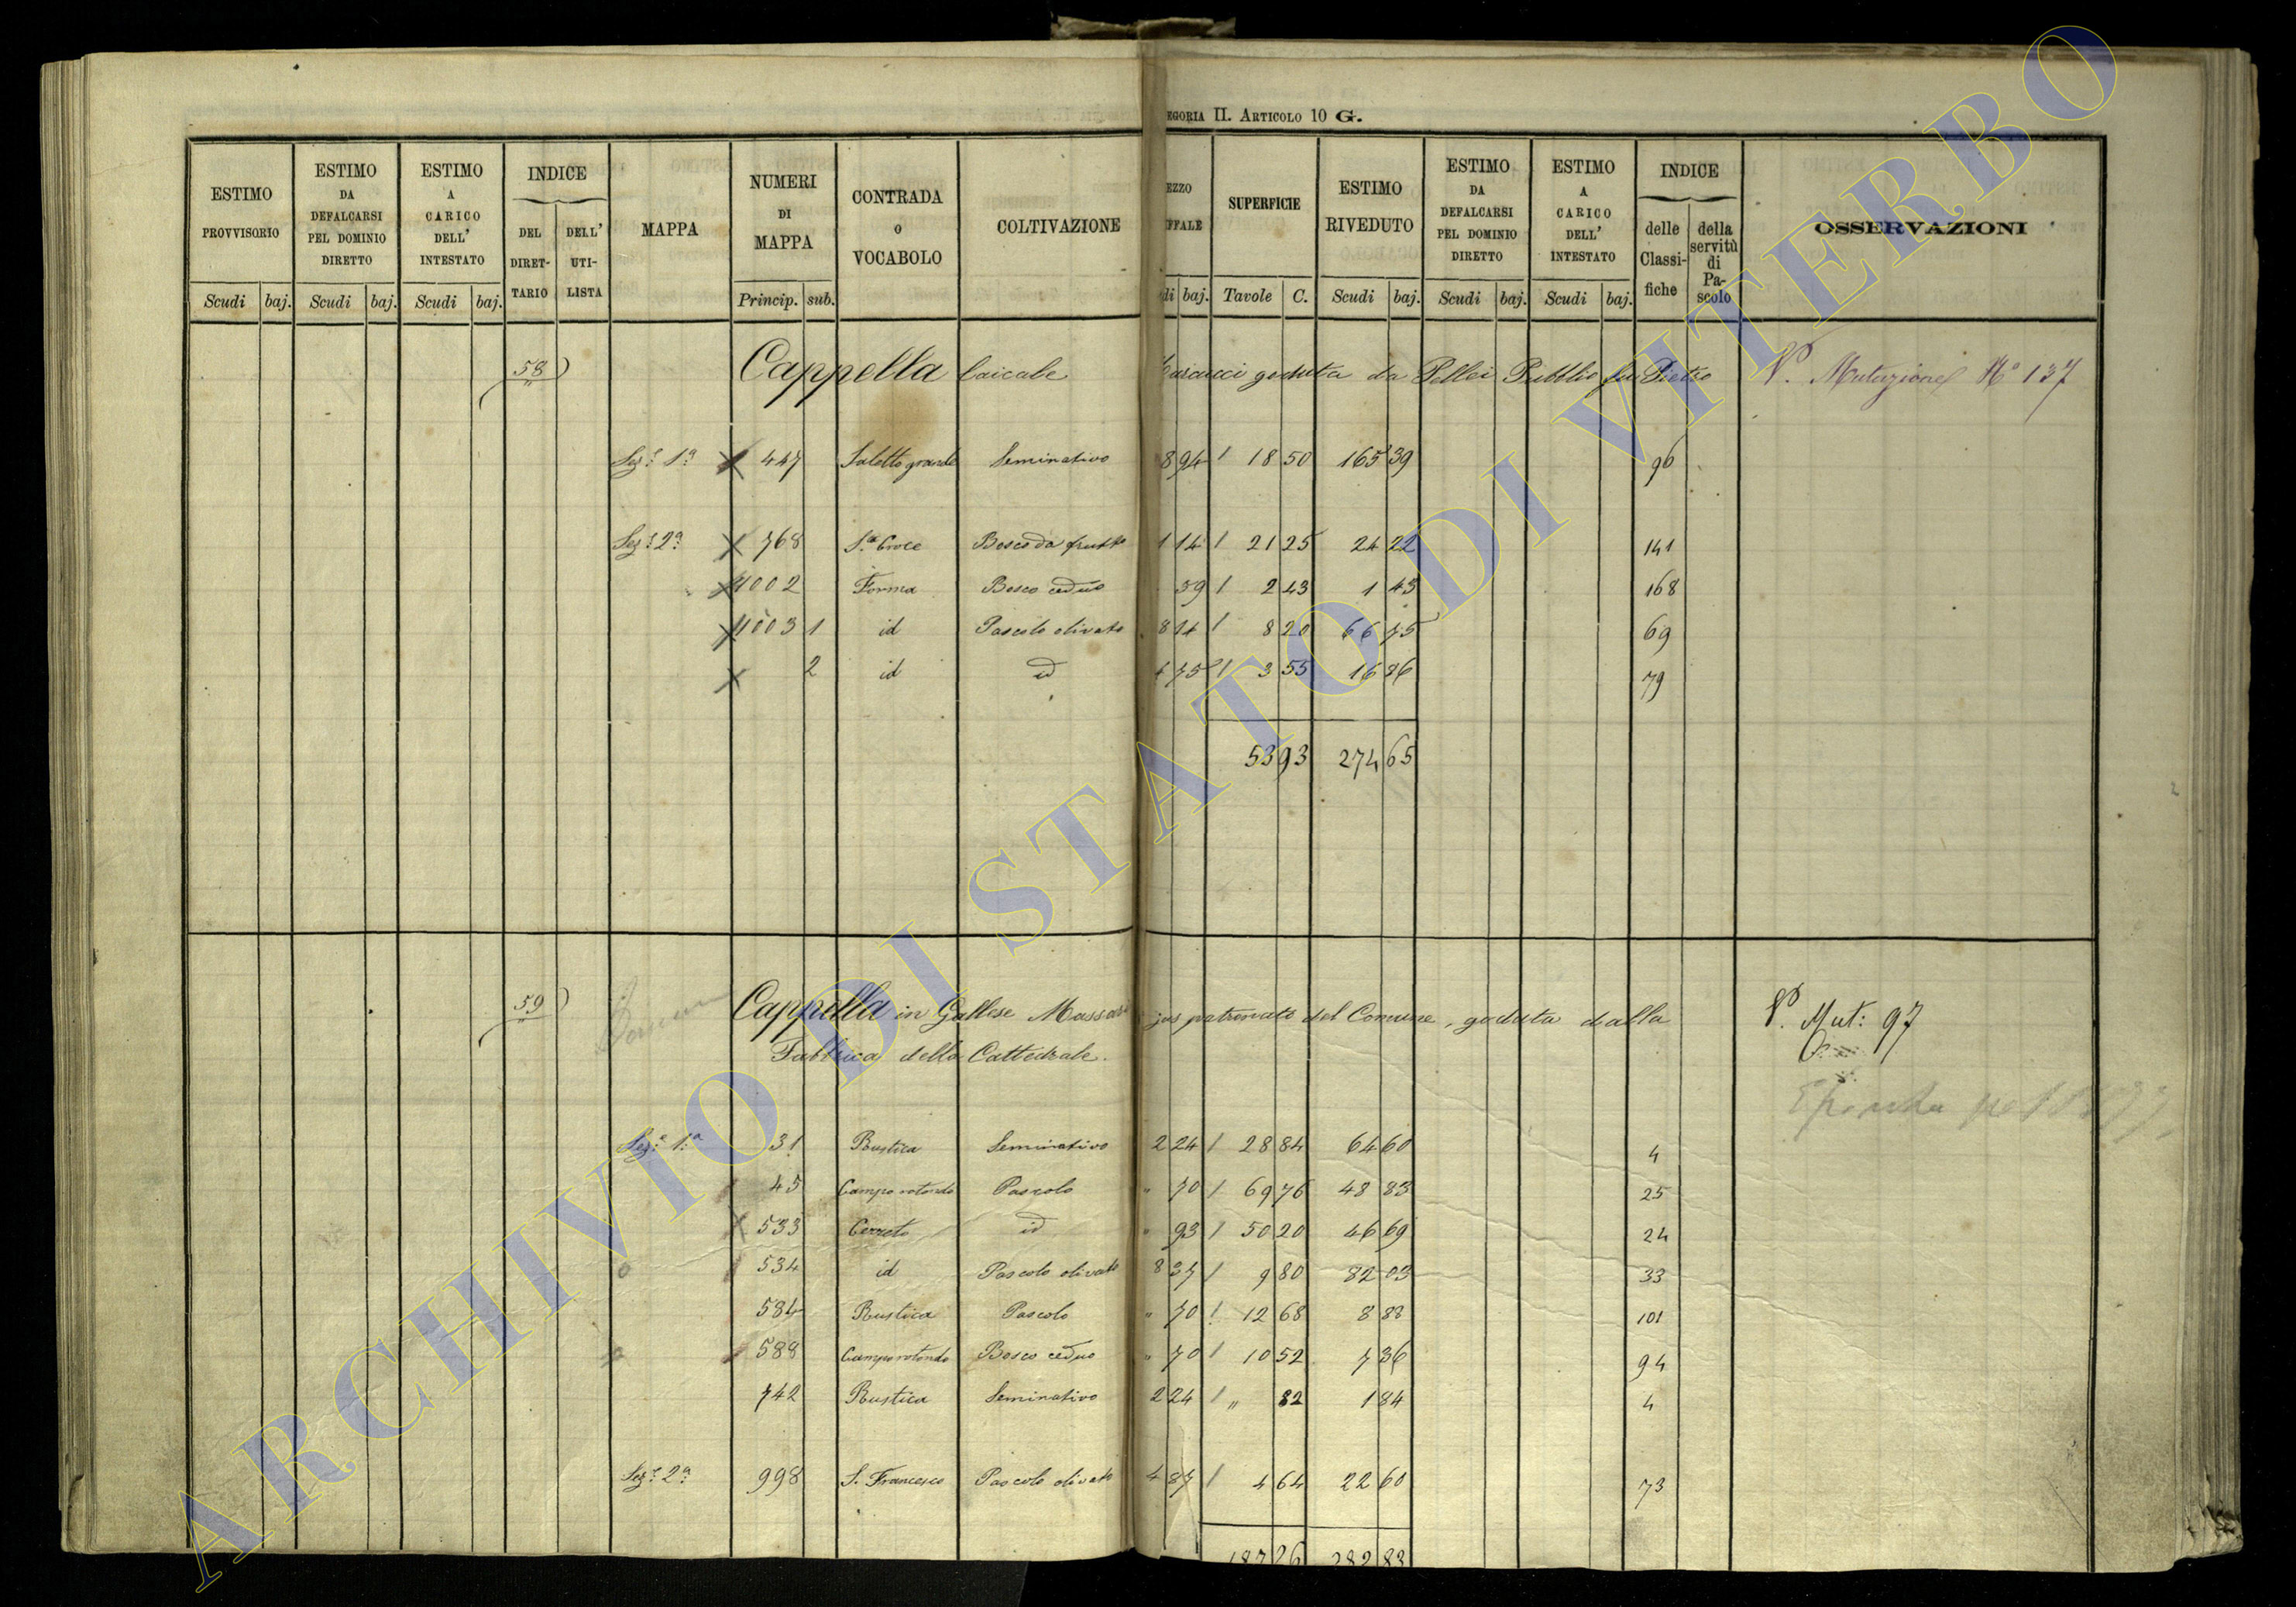 EGORIA II. ARTICOLO 10 G.
ESTIMO PROVVISORIO Scudi baj.
ESTIMO DA DEFALCARSI PEL DOMINIO DIRETTO Scudi baj.
ESTIMO A CARICO DELL' INTESTATO Scudi baj.
INDICE DEL DIRET-TARIO DELL' UTI-LISTA
MAPPA
NUMERI DI MAPPA Princip. sub.
CONTRADA o VOCABOLO
COLTIVAZIONE
EZZO FFALE di baj.
SUPERFICIE Tavole C.
ESTIMO RIVEDUTO Scudi baj.
ESTIMO DA DEFALCARSI PEL DOMINIO DIRETTO Scudi baj.
ESTIMO A CARICO DELL' INTESTATO Scudi baj.
INDICE delle Classi-fiche della servitù di Pa-scolo
OSSERVAZIONI
58) Cappella laicale goduta da Pellei Pubblio fu Pietro V. Mutazione N° 137
Sez.e 1a 447 Saletto grande Seminativo 8 94 18 50 165 39 96
Sez.e 2a 768 S.a Croce Bosco da frutto 1 14 21 25 24 22 141
1002 Forma Bosco ceduo 59 2 43 1 43 168
1003 1 id Pascolo olivato 8 14 8 20 66 75 69
2 id id 4 75 3 55 16 86 79
53 93 274 65
59) Cappella in Gallese Massari jus patronato del Comune, goduta dalla V. Mut: 97
Fabbrica della Cattedrale.
Sez.a 1.a 31 Rustica Seminativo 2 24 28 84 64 60 4
45 Campo rotondo Pascolo " 70 69 76 48 83 25
533 Cerreto id " 93 50 20 46 69 24
534 id Pascolo olivato 8 37 9 80 82 03 33
584 Rustica Pascolo " 70 12 68 8 88 101
588 Campo rotondo Bosco ceduo " 70 10 52 7 36 94
742 Rustica Seminativo 2 24 " 82 1 84 4
Sez.e 2a 998 S. Francesco Pascolo olivato 4 87 4 64 22 60 73
187 26 282 83
ARCHIVIO DI STATO DI VITERBO